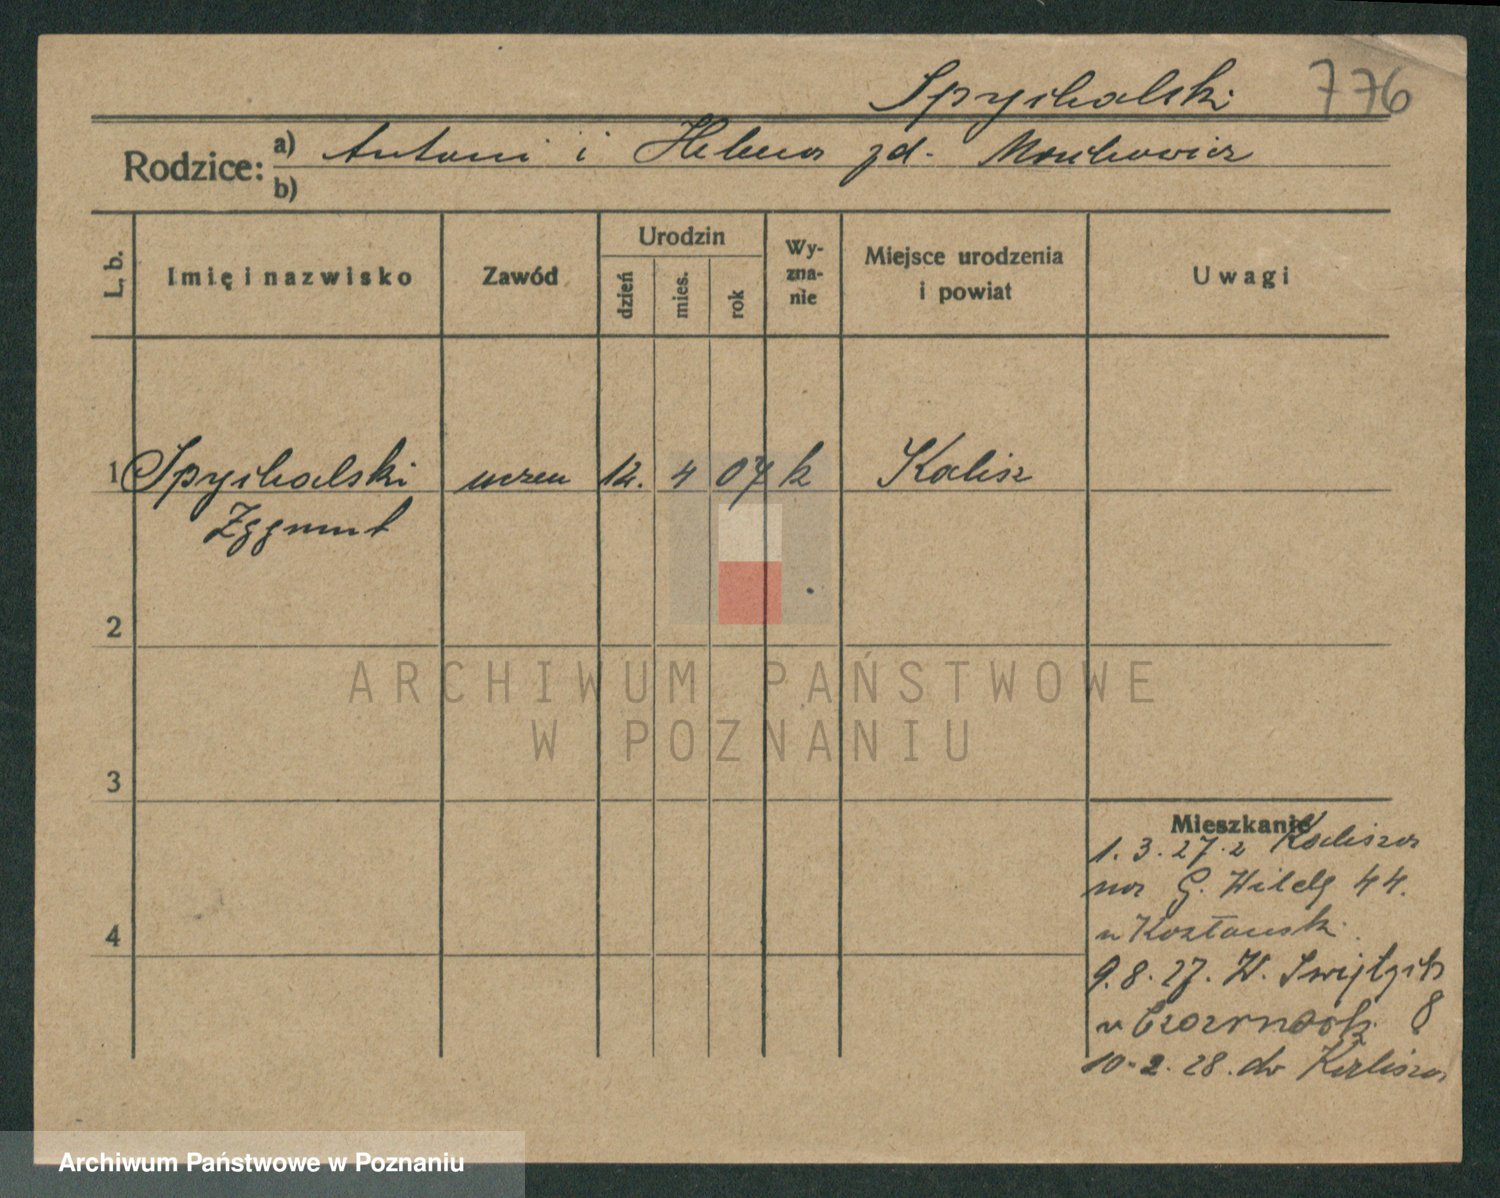 Spychalski 776
Rodzice: a) Antoni i Helena zd. Mouchowicz
b)
L. b. Imię i nazwisko Zawód Urodzin dzień mies. rok Wy-zna-nie Miejsce urodzenia i powiat Uwagi
1 Spychalski uczeń 12. 4 07 k Kalisz
Zygmunt
2
ARCHIWUM PAŃSTWOWE
W POZNANIU
3
Mieszkanie
1.3.27. z Kalisza
na G. Wildę 44.
u Kozłowsk.
9.8.27. W.
u Czarneck. 8
10.2.28. do Kalisza
4
Archiwum Państwowe w Poznaniu